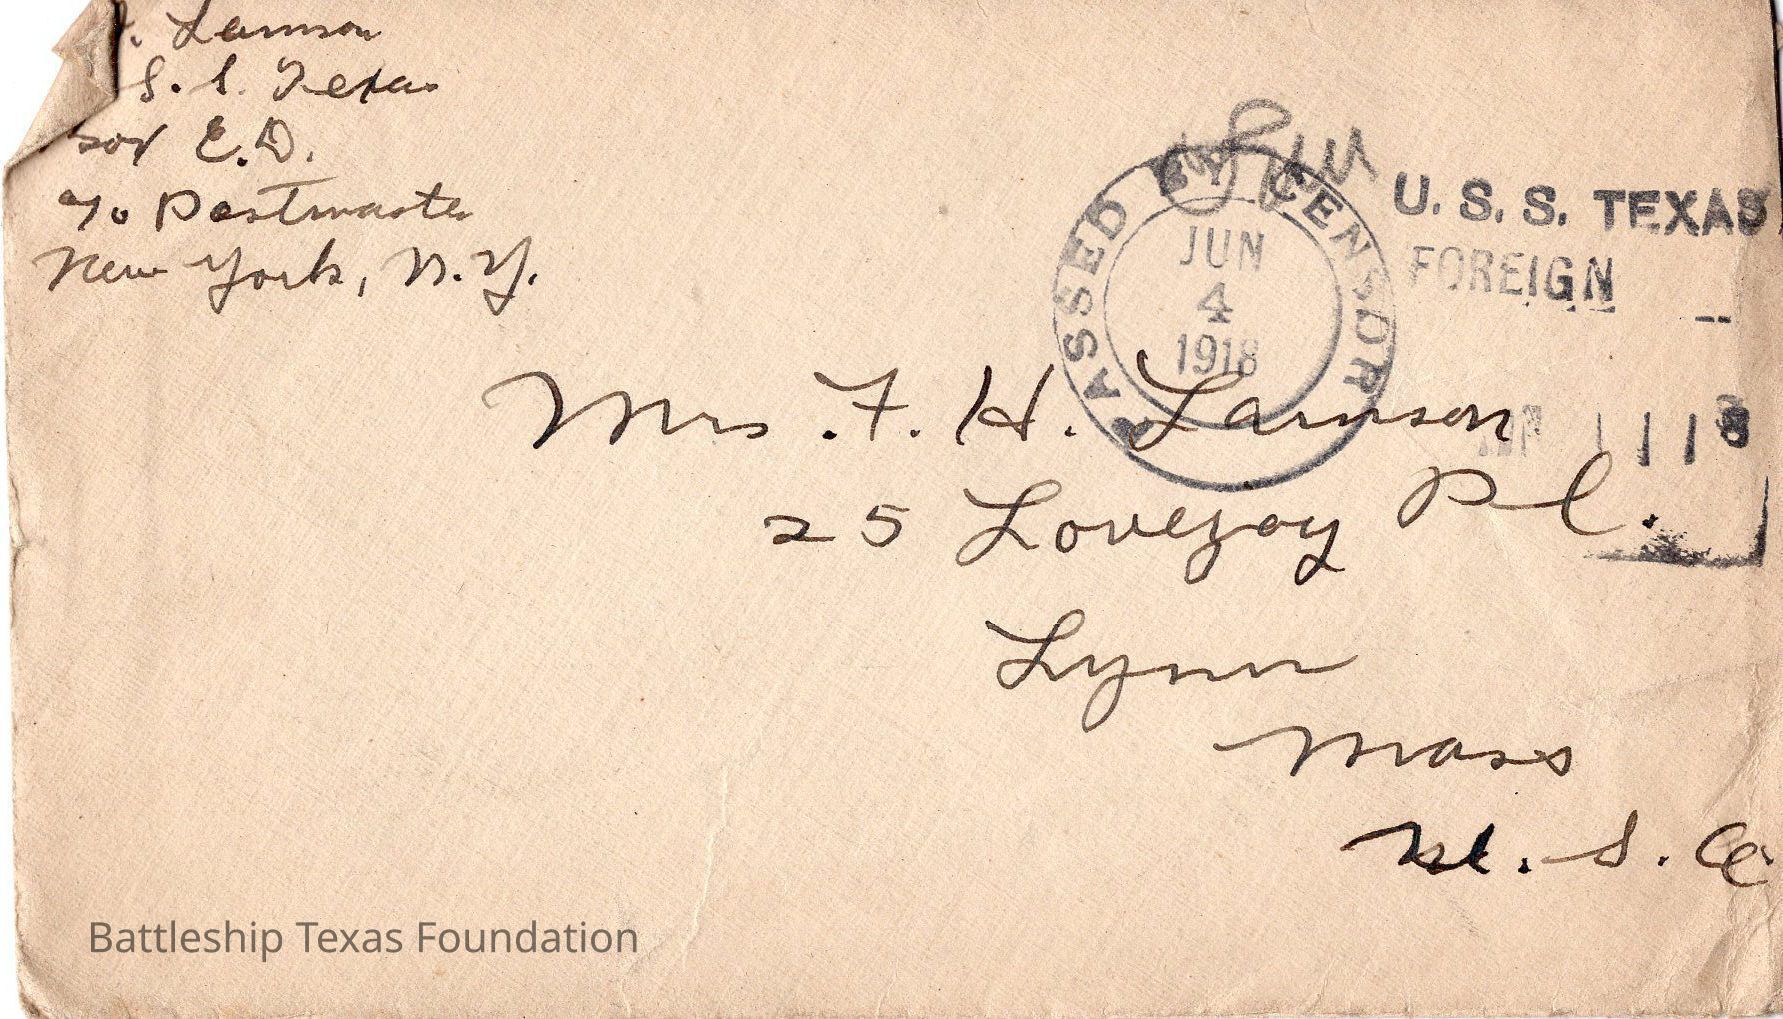 . Lamson
S. S. Texas
E. D.
c/o Postmaster
New York, N. Y.
PASSED BY CENSOR
JUN
4
1918
U. S. S. TEXAS
FOREIGN
Mrs. F. H. Lamson
25 Lovejoy Pl.
Lynn
Mass
U. S. A.
Battleship Texas Foundation